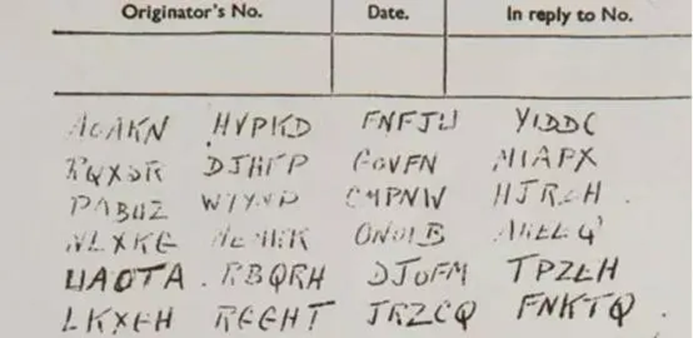 Originator's No. Date. In reply to No.
AOAKN HVPKD FNFJU YIDDC
RQXSR DJHFP GOVFN MIAPX
PABUZ WYYNP CMPNW HJRZH
NLXKG ONOIB
UAOTA RBQRH DJOFM TPZEH
LKXGH RGGHT JRZCQ FNKTQ